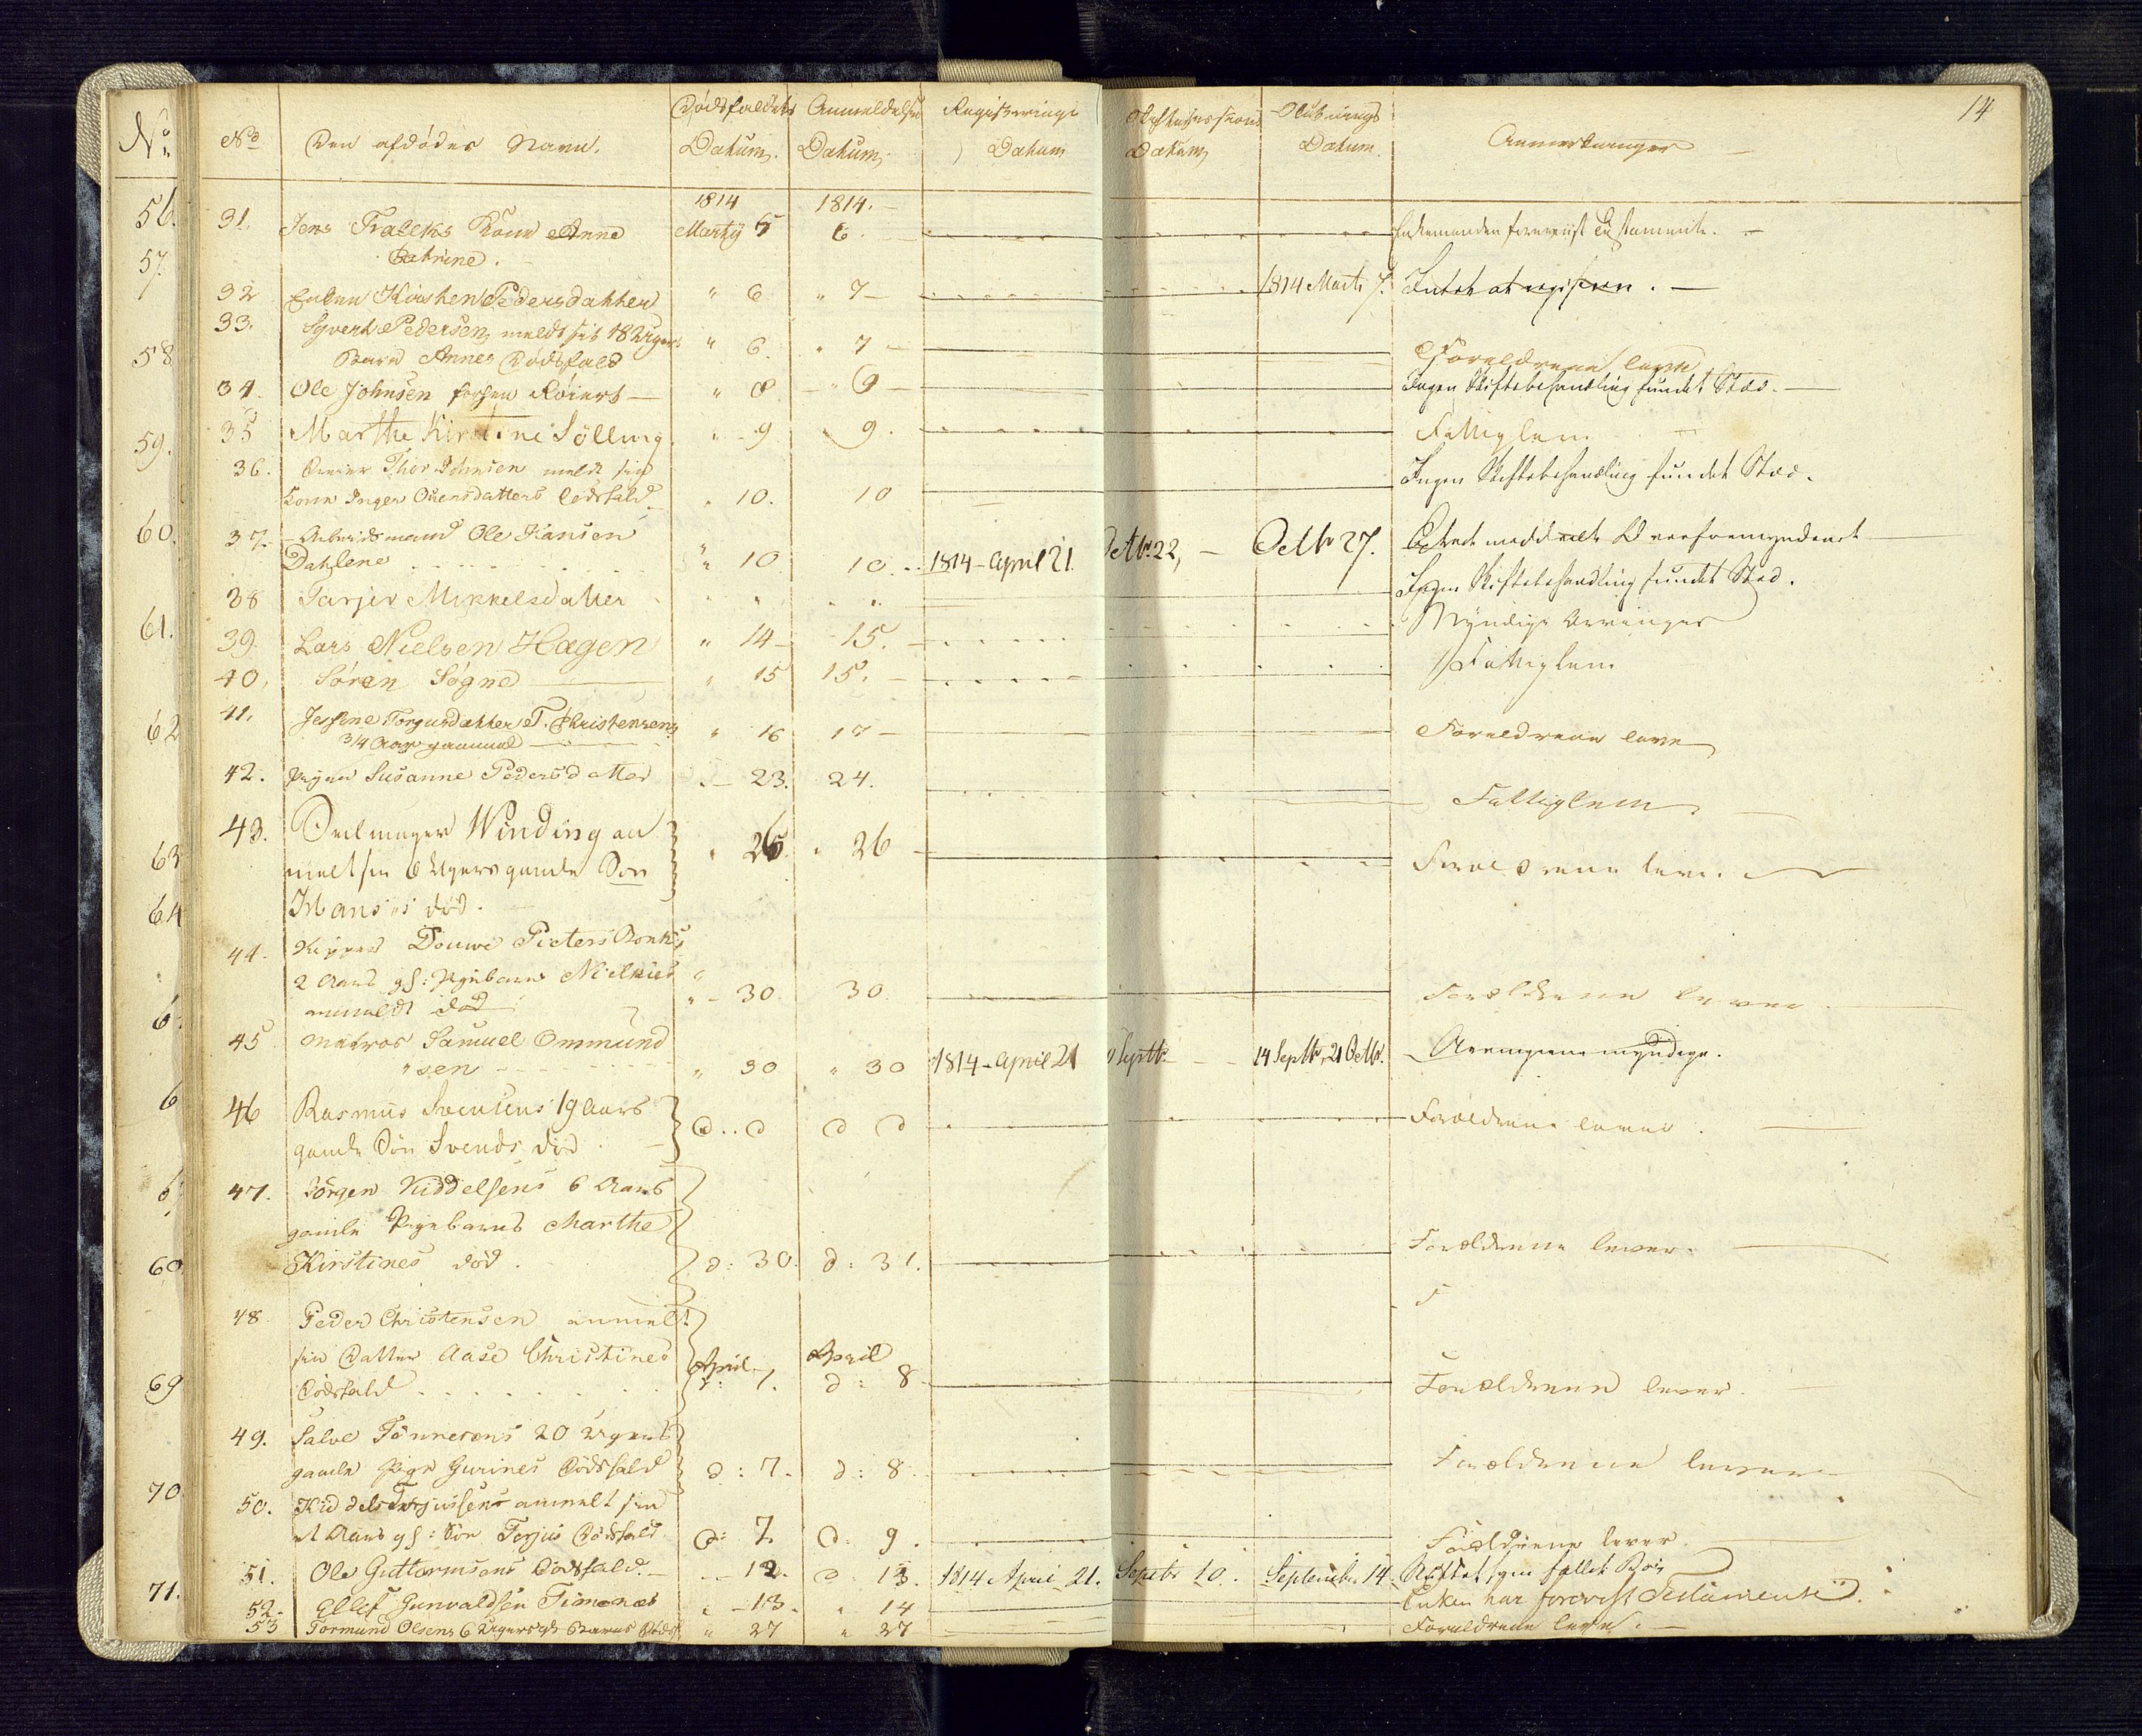 14
No
No
Den afdødes Navn.
Dødsfaldets Datum.
Anmeldelses Datum.
Registerings Datum
Skiftesessions Datum
Slutnings Datum
Anmerkninger
56.
57.
58
59.
60.
61.
62
63
64
69
70
71.
1814 1814.
31. Jens Kone Anne Martij 5 6 Enkemanden foreviist Testamente.
Cathrine.
32 Enken Kirsten Pedersdatter " 6 " 7 1814 Marti 7. Intet at registrere.
33. Syvert Pedersen meldt sit 18 Ugers " 6. " 7
Barn Annes Dødsfald Forældrene leve
34. Ole Johnsen " 8 " 9 Ingen Skiftebehandling fundet Sted.
35 Marthe Kirstine Sølling " 9 " 9. Fattiglem
36. Thor Johnsen meldt sin
Kone Inger Olensdatters Dødsfald " 10. 10 Ingen Skiftebehandling fundet Sted.
37. Arbeidsmand Ole Hansen
Dahlene " 10 10. 1814 - April 21. Octbr. 22, Octbr 27. Extract meddeelt Overformynderiet
38 Tarjer Mikkelsdatter " " " " Ingen Skiftebehandling fundet Sted.
39. Lars Nielsen Hagen " 14 15. Myndige Arvinger
40. Søren Søgne " 15 15. Fattiglem
41. Jesine Torgusdatter T. Christensens
3/4 Aar gammel " 16 17 Forældrene leve
42. Pigen Susanne Pedersdatter 23. 24. Fattiglem
43. Seilmager Winding an
meldt sin 6 Ugers gamle Søn " 26. " 26 Forældrene leve.
Hans's død.
44. Skipper Douwe Pieters Bonks
2 Aars gl: Pigebarn Nielkies
anmeldt død " 30. 30. Forældrene lever
45 Matros Samuel Ommund
"sen " 30 " 30 1814 - April 21 Septbr. 14 Septbr, 21 Octbr. Arvingerne myndige.
46 Rasmus Svensens 19 Aars
gamle Søn Svends død. d.. d d d Forældrene lever.
47. Jørgen Kiddelsens 6 Aars
gamle Pigebarns Marthe
Kirstines død. d: 30. d: 31. Forældrene lever.
48. Peder Christensen anmelt
sin Datter Aase Christines April April
Dødsfald d: 7. d: 8 Forældrene lever.
49. Salve Tønnesens 20 Ugers
gamle Pige Gurines Dødsfald d: 7. d: 8. Forældrene lever
50. Kiddel Terjussens anmelt sin
et Aars gl: Søn Terjus Dødsfald d: 7. d: 9. Forældrene lever.
51. Ole Guttormsens Dødsfald. 12. d 13. 1814 April 21. Septbr 10. September 14. Boe
52. Ellef Gunvaldsen Timenæs " 13. " 14 Enken har foreviist Testamente.
53 Tormund Olsens 6 Ugers gl. Barns Døds " 27 " 27 Forældrene leve.